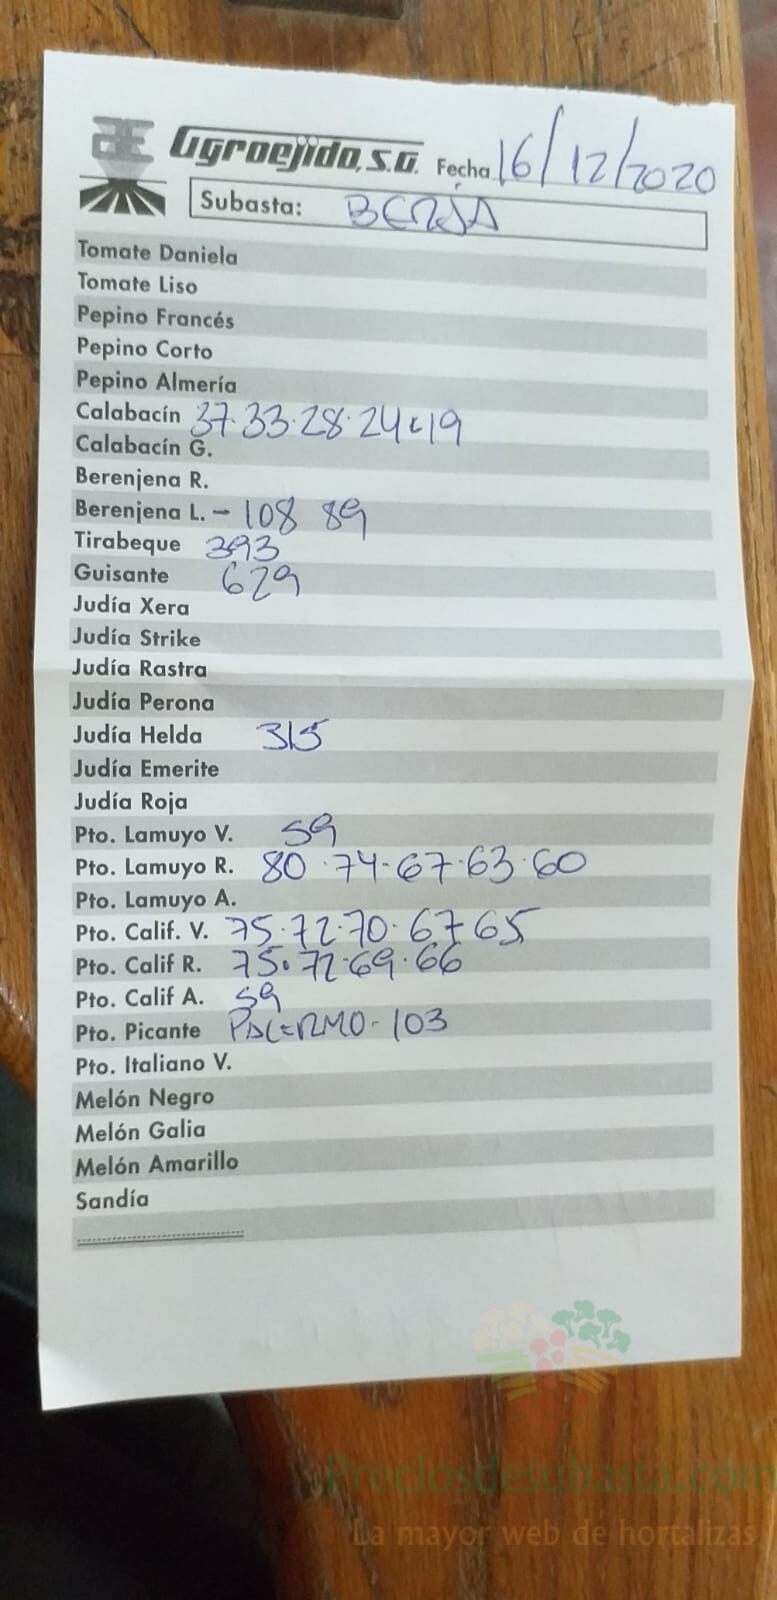 Agroejido, S.A. Fecha 16/12/2020
Subasta: BERJA
Tomate Daniela
Tomate Liso
Pepino Francés
Pepino Corto
Pepino Almería
Calabacín 37.33.28.24 19
Calabacín G.
Berenjena R.
Berenjena L. - 108 89
Tirabeque 393
Guisante 629
Judía Xera
Judía Strike
Judía Rastra
Judía Perona
Judía Helda 315
Judía Emerite
Judía Roja
Pto. Lamuyo V. 59
Pto. Lamuyo R. 80.74-67.63.60
Pto. Lamuyo A.
Pto. Calif. V. 75.72.70.67 65
Pto. Calif R. 75.72.69.66
Pto. Calif A. 59
Pto. Picante PALERMO-103
Pto. Italiano V.
Melón Negro
Melón Galia
Melón Amarillo
Sandía
Preciosdesubasta.com
La mayor web de hortalizas